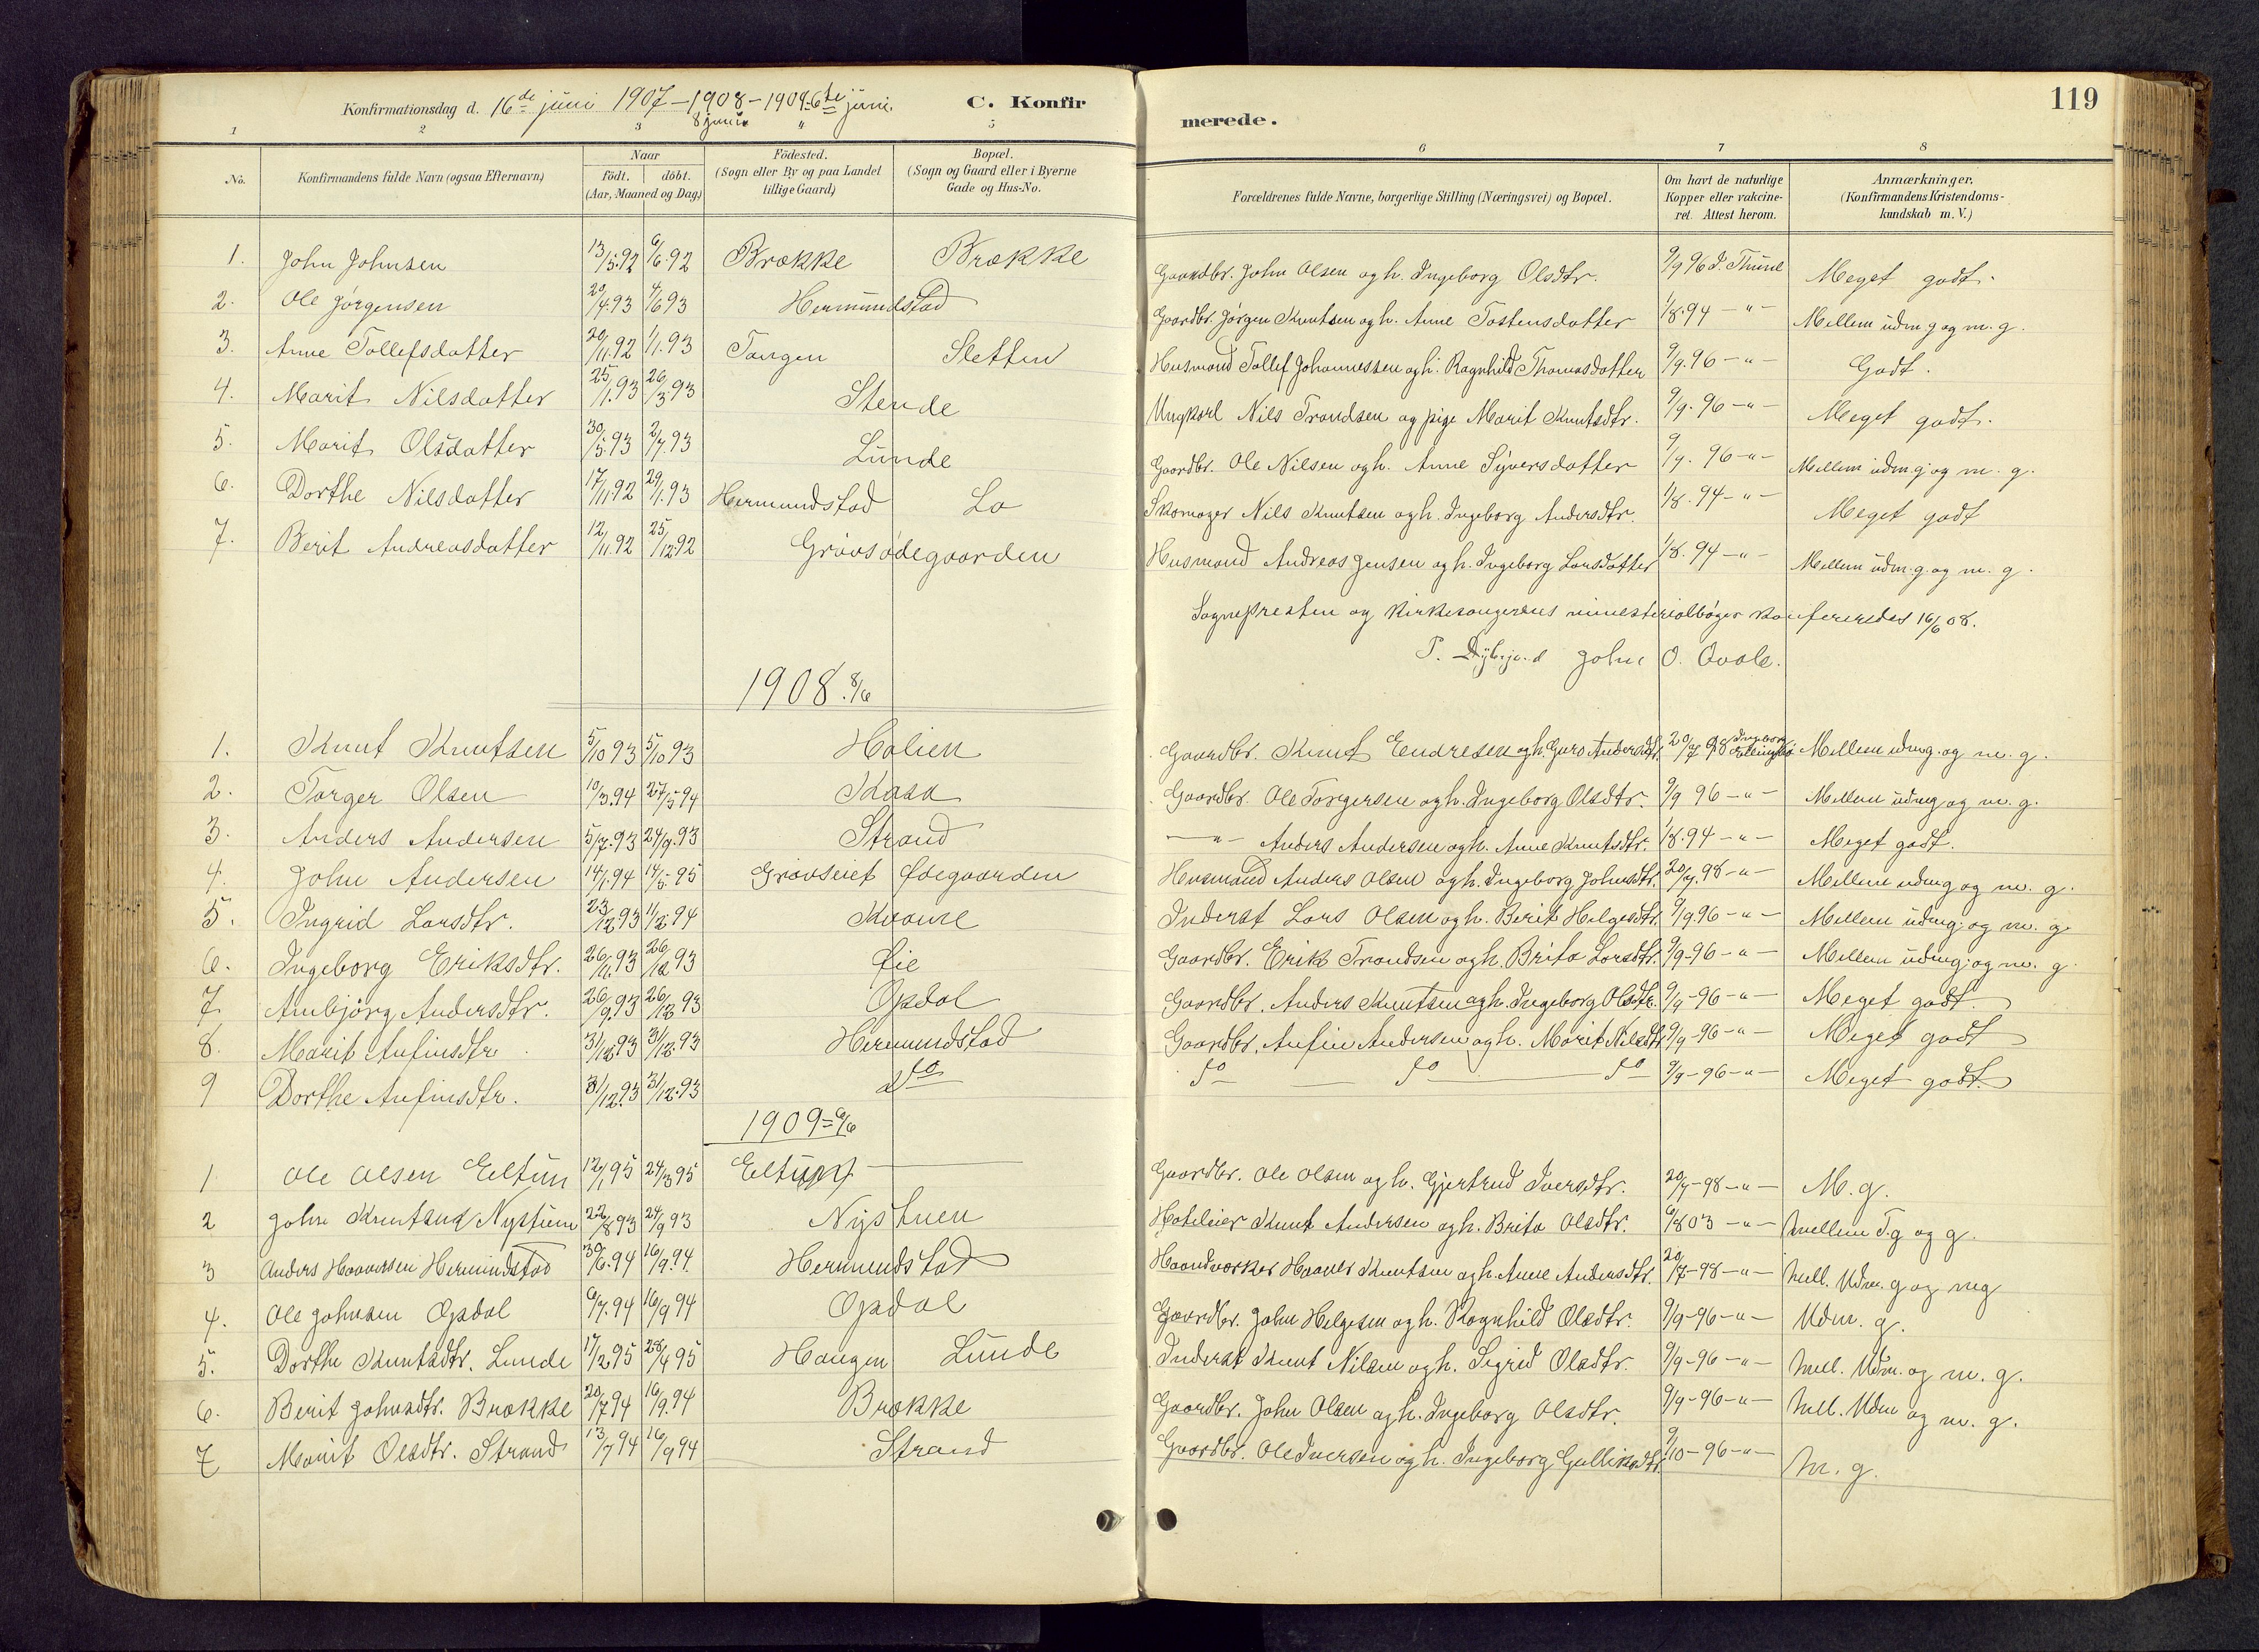 Konfirmationsdag d. 16de juni 1907-1908-1909-6te juni.
8 juni
C. Konfirmerede.
119
1 2 3 4 5 6 7 8
No.
Konfirmandens fulde Navn (ogsaa Efternavn)
Naar
födt. döbt.
(Aar, Maaned og Dag.)
Födested.
(Sogn eller By og paa Landet
tillige Gaard)
Bopæl.
(Sogn og Gaard eller i Byerne
Gade og Hus-No.
Forældrenes fulde Navne, borgerlige Stilling (Næringsvei) og Bopæl.
Om havt de naturlige
Kopper eller vakcine-
ret. Attest herom.
Anmærkninger.
(Konfirmandens Kristendoms-
kundskab m. V.)
1. John Johnsen 13/5.92 6/6.92 Brække Brække Gaardbr. John Olsen og h. Ingeborg Olsdtr. 9/9 96 I. Thune Meget godt.
2. Ole Jørgensen 20/4.93 4/6 93 Hermundstad Gaardbr. Jørgen Knutsen og h. Anne Tostensdatter 1/8.94 -"- Mellem udm. g og m. g.
3. Anne Tollefsdatter 20/11.92 1/1.93 Tangen Sletten Husmand Tollef Johannessen og h. Ragnhild Thomasdatter 9/9.96 -"- Godt.
4. Marit Nilsdatter 25/1.93 26/3 93 Stende Ungkarl Nils Trondsen og pige Marit Knutsdtr. 9/9.96 -"- Meget godt.
5. Marit Olsdatter 30/5.93 2/7.93 Lunde Gaardbr. Ole Nilsen og h. Anne Syversdatter 9/9.96 -"- Mellem udm. g. og m. g.
6. Dorthe Nilsdatter 17/11.92 29/1.93 Hermundstad Lo Skomager Nils Knutsen og h. Ingeborg Andersdtr. 1/8.94 -"- Meget godt
7. Berit Andreasdatter 12/11.92 25/12 92 Grövsødegaarden Husmand Andreas Jensen og h. Ingeborg Larsdatter 1/8.94 -"- Mellem udm. g. og m. g.
Sognepresten og kirkesangerens ministerialbøger konfereredes 16/6 08.
John O. Qvale.
1908. 8/6
1. Knut Knutsen 5/10 93 5/10 93 Halien Gaardbr. Knut Endresen og h. Guro Andersdtr. 20/7 98 Mellem udm g. og m. g.
2. Torger Olsen 10/3.94 27/5 94 Kasa Gaardbr. Ole Torgersen og h. Ingeborg Olsdtr. 9/9 96 -"- Mellem udm g og m. g.
3. Anders Andersen 5/7.93 24/9.93 Strand -"- Anders Andersen og h. Anne Knutsdtr. 1/8.94 -"- Meget godt.
4. John Andersen 14/1.94 14/5 95 Grövseiet Øiegaarden Husmand Anders Olsen og h. Ingeborg Johnsdtr. 20/7.98 -"- Mellem udm g og m. g.
5. Ingrid Larsdtr. 23/12 93 11/2 94 Kvame Inderst Lars Olsen og h. Berit Helgesdtr. 9/9.96 -"- Mellem udm g. og m. g.
6. Ingeborg Eriksdtr. 26/11.93 26/12 93 Øie Gaardbr. Erik Trondsen og h. Brita Larsdtr. 9/9-96 -"- Mellem udm g. og m. g.
7. Anbjørg Andersdtr. 26/9.93 26/12 93 Opdal Gaardbr. Anders Knutsen og h. Ingeborg Olsdtr. 9/9-96 -"- Meget godt.
8. Marit Anfinsdtr 31/12.93 31/12.93 Hermundstad Gaardbr. Anfin Andersen og h. Marit Nilsdtr 9/9-96 -"- Meget godt
9 Dorthe Anfinsdtr. 31/12.93 31/12.93 do do do do 9/9-96 -"- Meget godt.
1909 = 6/6
1 Ole Olsen Eltun 12/1 95 24/3 95 Eltun Gaardbr. Ole Olsen og h. Gjertrud Iversdtr. 20/7-98 -"- M. g.
2 John Knutsen Nystuen 22/8 93 24/9 93 Nystuen Hoteleier Knut Andersen og h. Brita Olsdtr. 6/8 03 -"- mellem T. g og g.
3 Anders Haaversen Hermundstad 30/6.94 16/9.94. Hermundstad Haandverker Haaver Knutsen og h. Anne Andersdtr. 20/7-98 -"- Mell. Udm. g og mg
4. Ole Johnsen Opdal 6/7.94 16/9 94 Opdal Gaardbr. John Helgesen og h. Ragnhild Olsdtr. 9/9-96 -"- Udm. g.
5. Dorthe Knutsdtr. Lunde 17/2 95 28/4 95 Haugen Lunde Inderst Knut Nilsen og h. Sigrid Olsdtr. 9/9-96 -"- Mell. Udm. og m. g.
6. Berit Johnsdtr. Brække 20/7 94 16/9.94 Brække Gaardbr. John Olsen og h. Ingeborg Olsdtr. 9/9-96 -"- Mell. Udm og m. g.
7 Marit Olsdtr. Strand 13/7 94 16/9 94 Strand Gaardbr. Ole Iversen og h. Ingeborg Gulliksdtr. 9/10-96 -"- M. g.